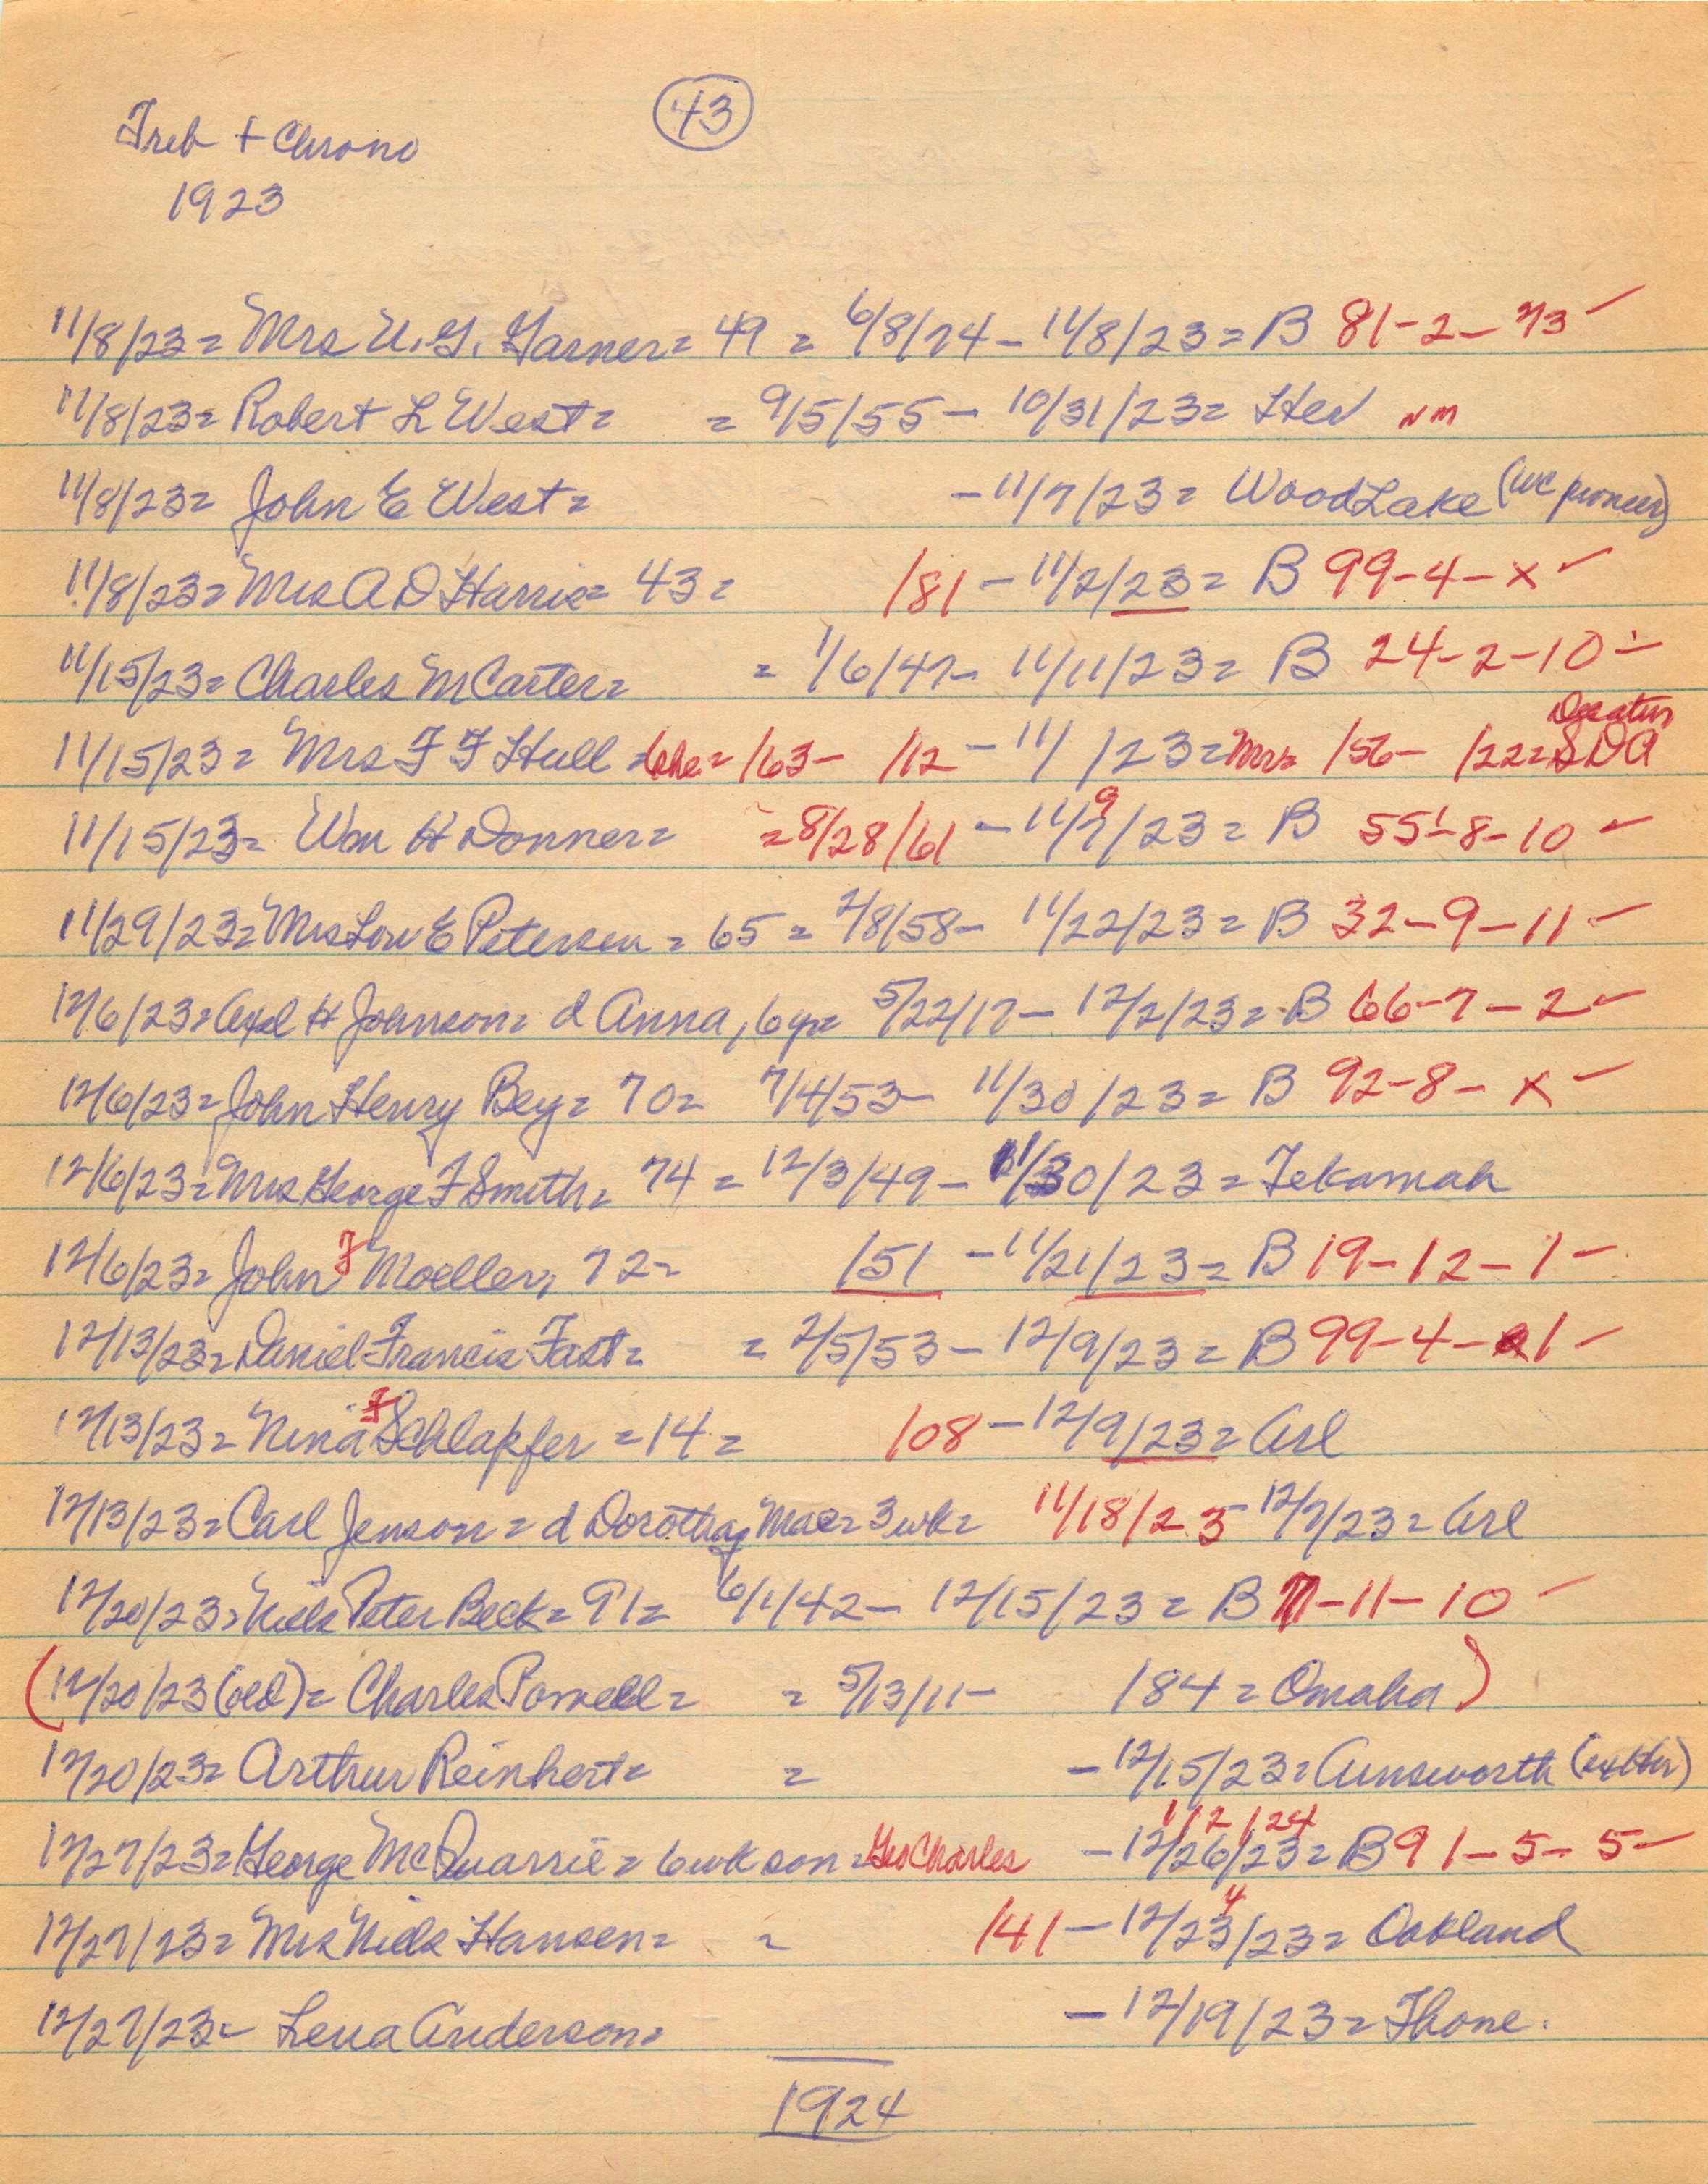 43
Trib + Chrono
1923
11/8/23 = Mrs U.G. Garner = 49 = 6/8/74 - 11/8/23 = B 81-2-73 ✓
11/8/23 = Robert L West = = 9/5/55 - 10/31/23 = Her NM
11/8/23 = John E West = - 11/7/23 = Wood Lake (WC pioneer)
11/8/23 = Mrs A D Harris = 43 = /81 - 11/2/23 = B 99-4-x ✓
11/15/23 = Charles M Carter = = 1/6/47 - 11/11/23 = B 24-2-10 ✓
Decatur
11/15/23 = Mrs F F Hull = Chs = /63- /12 - 11/ /23 = Mrs = /56- /22 = SDA
9
11/15/23 = Wm H Donner = = 8/28/61 - 11/7/23 = B 55-8-10 ✓
11/29/23 = Mrs Lou E Petersen = 65 = 2/8/58 - 11/22/23 = B 32-9-11 ✓
12/6/23 = Axel H Johnson = d Anna, 6 yr = 5/22/17 - 12/2/23 = B 66-7-2 ✓
12/6/23 = John Henry Bey = 70 = 7/4/53 - 11/30/23 = B 92-8-x ✓
12/6/23 = Mrs George F Smith = 74 = 12/3/49 - 11/30/23 = Tekamah
12/6/23 = John F Moeller, 72 = /51 - 11/21/23 = B 19-12-1 ✓
12/13/23 = Daniel Francis Fast = = 2/5/53 - 12/9/23 = B 99-4-1 ✓
12/13/23 = Nina F Schlapfer = 14 = /08 - 12/9/23 = Arl
12/13/23 = Carl Jenson = d Dorothy Mae = 3 wk = 11/18/23 - 12/7/23 = Arl
12/20/23 = Niels Peter Beck = 91 = 6/1/42 - 12/15/23 = B 71-11-10 ✓
(12/20/23 (old) = Charles Powell = = 5/13/11 - /84 = Omaha)
12/20/23 = Arthur Reinhert = = - 12/15/23 = Ainsworth
1/2/24
12/27/23 = George McQuarrie = 6 wk son = Geo Charles - 12/26/23 = B 91-5-5 ✓
4
12/27/23 = Mrs Niels Hansen = = /41 - 12/23/23 = Oakland
12/27/23 = Lena Anderson = - 12/19/23 = Fhone.
1924